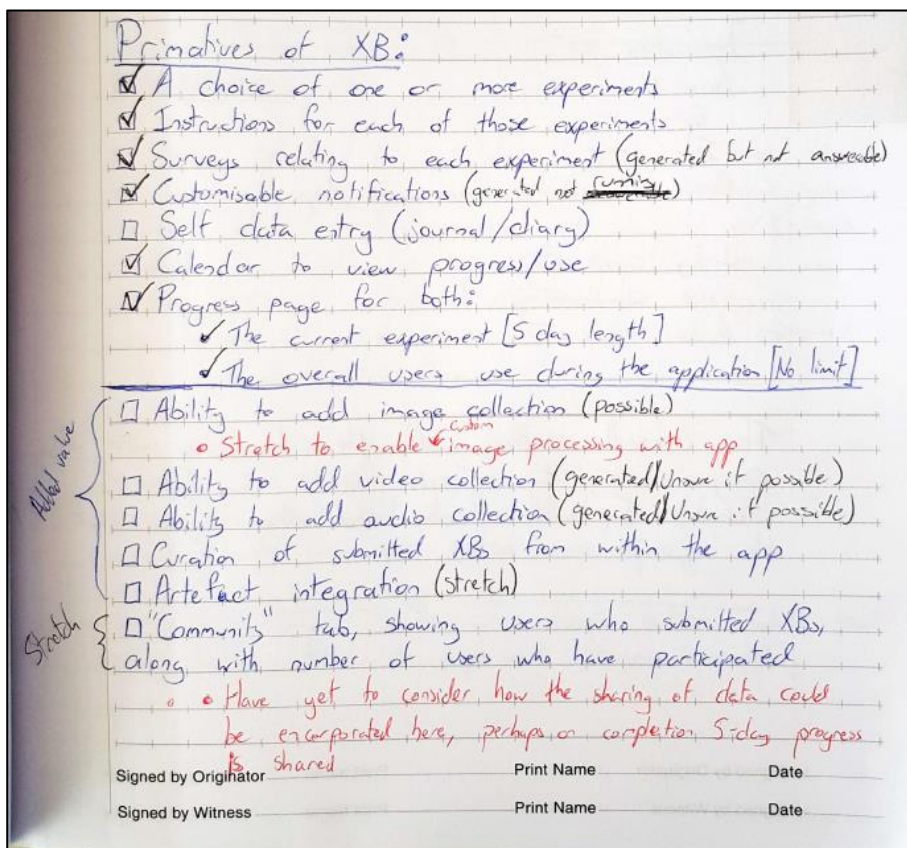 Primatives of XB:
☑ A choice of one or more experiments
☑ Instructions for each of those experiments
☑ Surveys relating to each experiment (generated but not answerable)
☑ Customisable notifications (generated not running)
☐ Self data entry (journal/diary)
☑ Calendar to view progress/use
☑ Progress page for both:
✓ The current experiment [5 day length]
✓ The overall users use during the application [No limit]
Added value
☐ Ability to add image collection (possible)
• Stretch to enable custom image processing with app
☐ Ability to add video collection (generated/Unsure if possible)
☐ Ability to add audio collection (generated/Unsure if possible)
☐ Curation of submitted XBs from within the app
☐ Artefact integration (stretch)
Stretch
☐ "Community" tab, showing users who submitted XBs,
along with number of users who have participated
• • Have yet to consider how the sharing of data could
be encorporated here, perhaps on completion 5-day progress
is shared
Signed by Originator Print Name Date
Signed by Witness Print Name Date